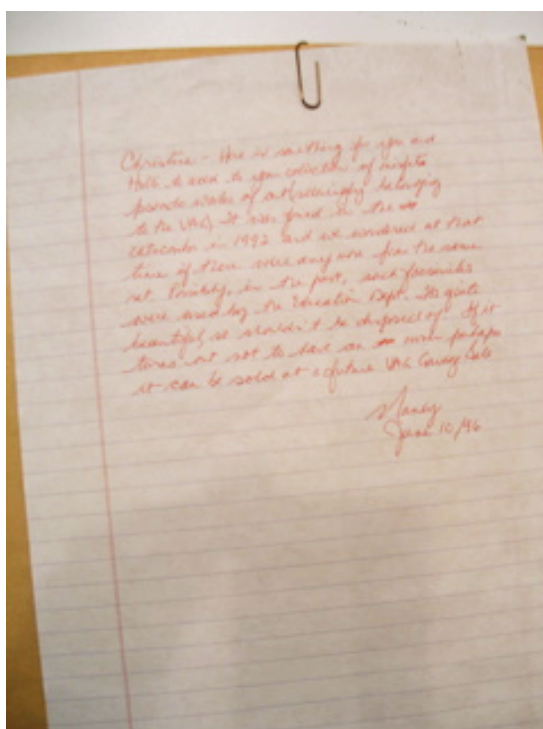 Christine - Here is something for you and
Holli to add to your collection of misfits
pseudo works of art (seemingly belonging
to the VAG). It was found in the
catacombs in 1992 and we wondered at that
time if there were any more from the same
set. Possibly, in the past, such facsimiles
were used by the Education Dept. Its quite
beautiful, so shouldn't be disposed of. If it
turns out not to have an owner perhaps
it can be sold at a future VAG Garage Sale
Nancy
June 10/96